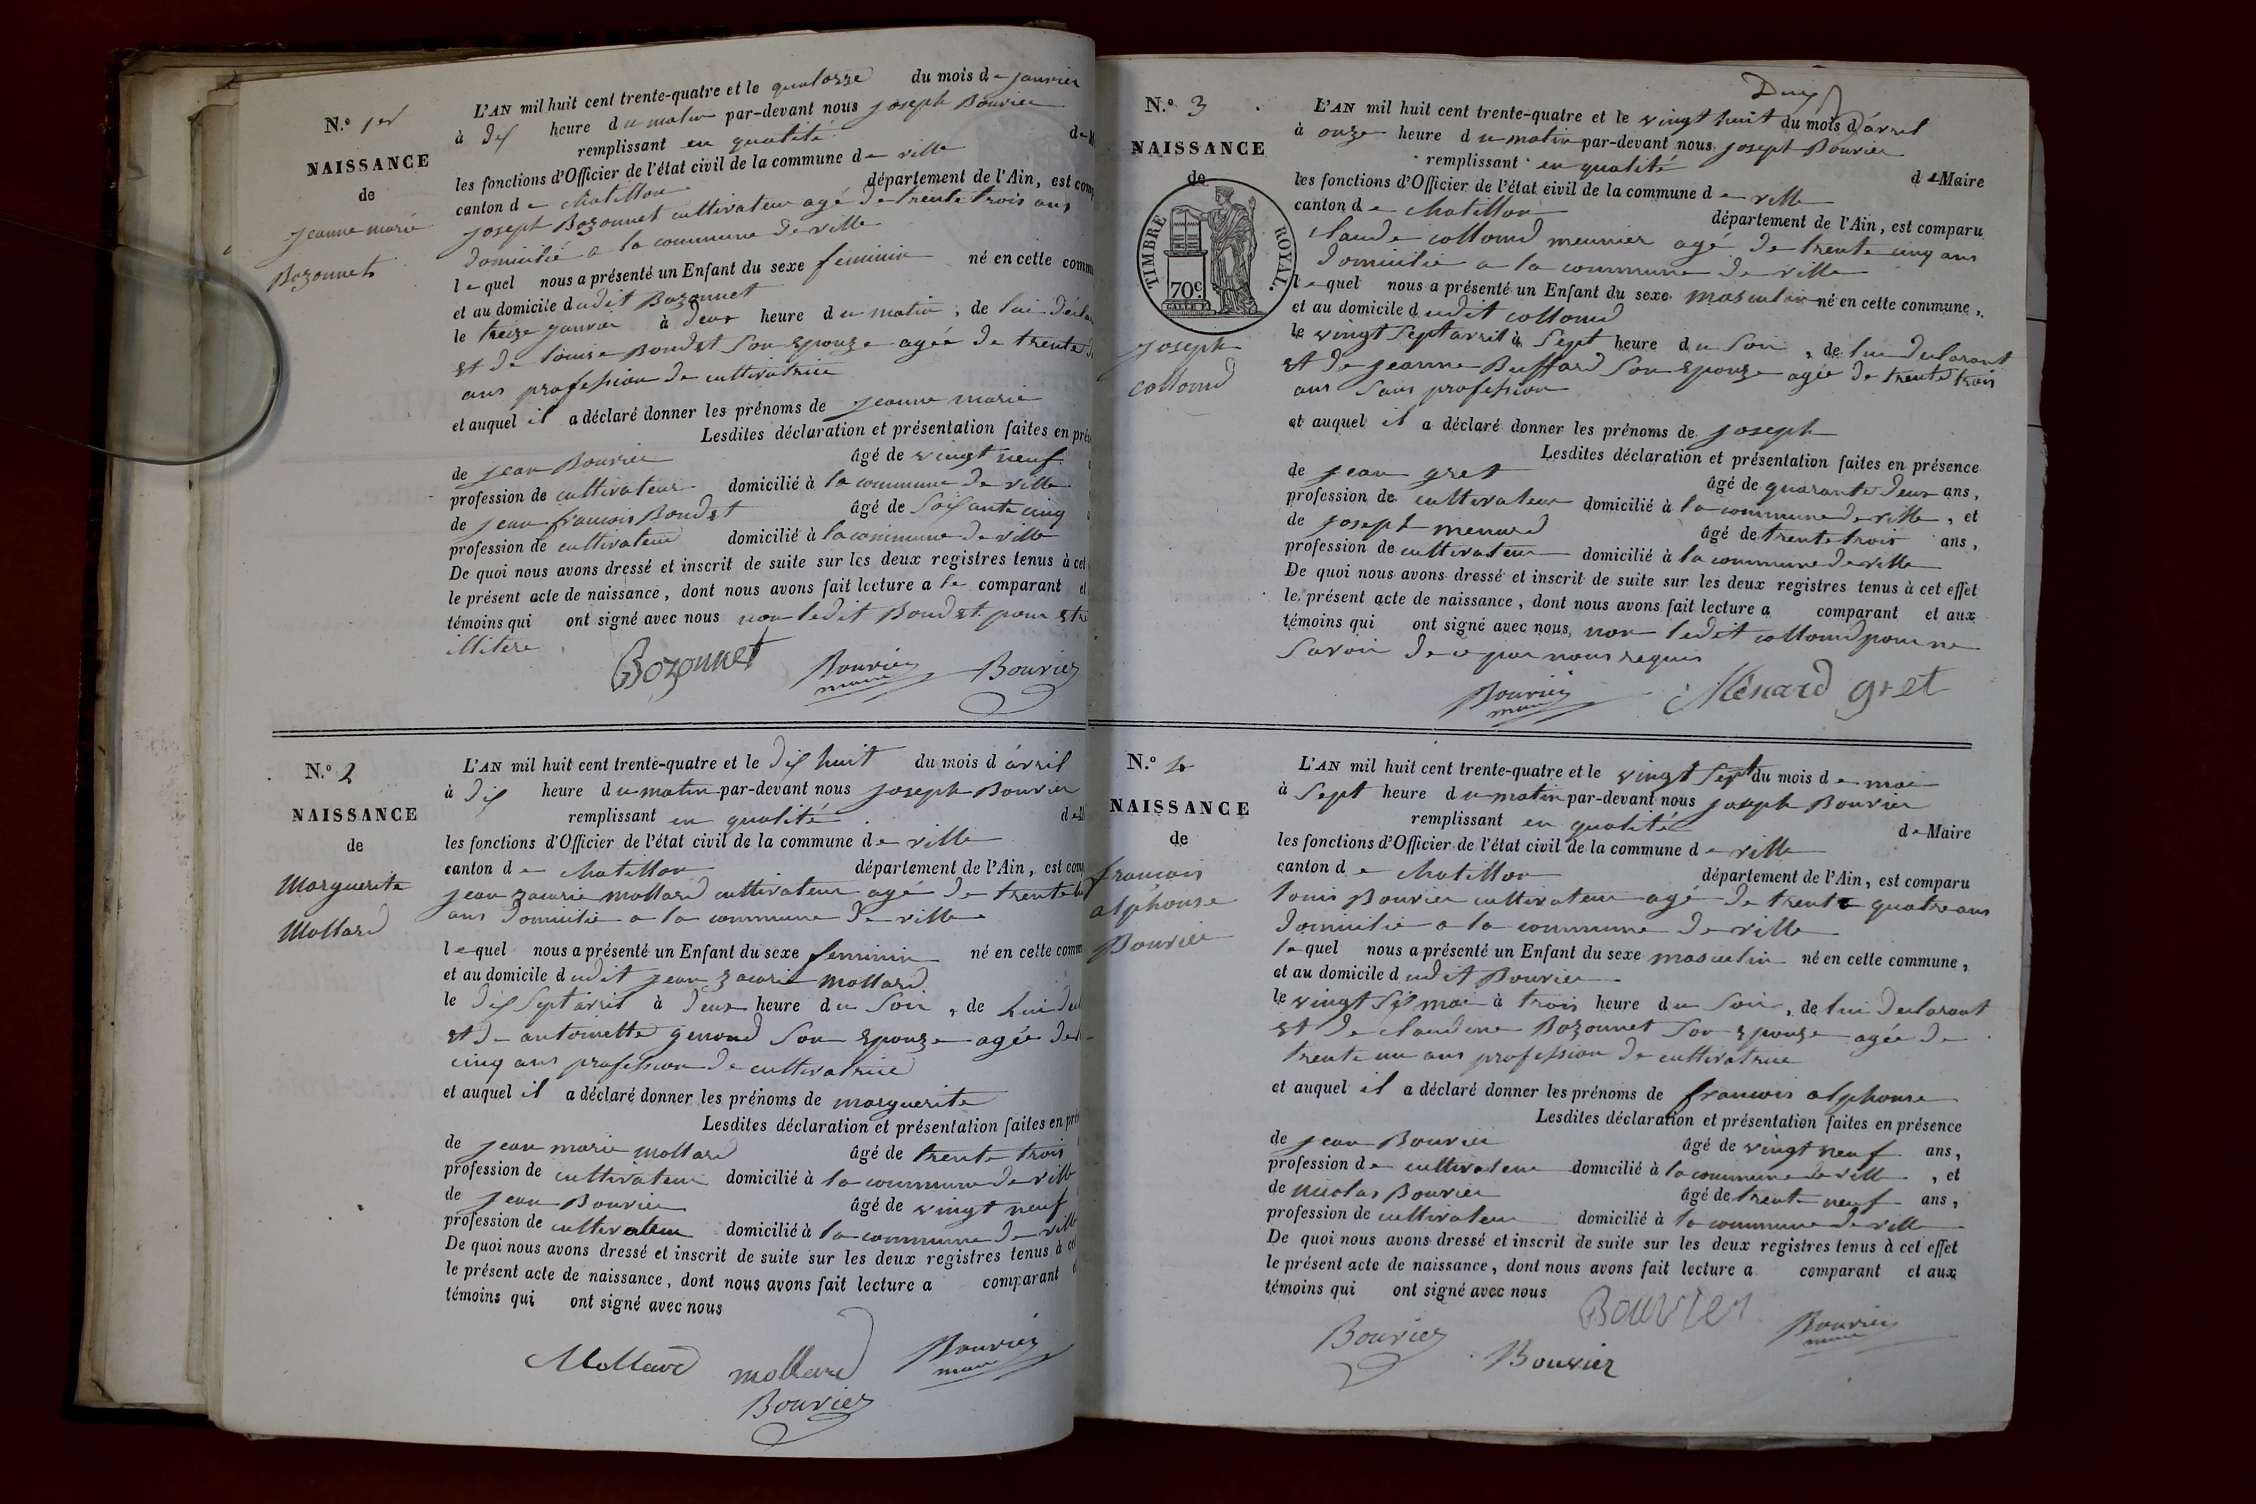 N.º 1er
NAISSANCE
de
jeanne marie
Bozonnet
L'AN mil huit cent trente-quatre et le quatorze du mois de janvier
à dix heure du matin par-devant nous joseph Bouvier
remplissant en qualité de M
les fonctions d'Officier de l'état civil de la commune de ville
canton de chatillon département de l'Ain, est comp
joseph Bozonnet cultivateur agé de trente trois ans
domicilié a la commune de ville
lequel nous a présenté un Enfant du sexe feminin né en cette comm
et au domicile dudit Bozonnet
le treize janvier à deux heure du matin, de lui décla
et de louise Boudet son epouze agée de trente
ans profession de cultivatrice
et auquel il a déclaré donner les prénoms de jeanne marie
Lesdites déclaration et présentation faites en pré
de jean Bouvier âgé de vingt neuf
profession de cultivateur domicilié à la commune de ville
de jean francois Boudet âgé de soixante cinq
profession de cultivateur domicilié à la commune de ville
De quoi nous avons dressé et inscrit de suite sur les deux registres tenus à cet
le présent acte de naissance, dont nous avons fait lecture a le comparant et
témoins qui ont signé avec nous non ledit Boudet pour etre
illitere
Bozonnet Bouvier Bouvier
maire
N.º 2
NAISSANCE
de
Marguerite
Mollard
L'AN mil huit cent trente-quatre et le dix huit du mois d'avril
à dix heure du matin par-devant nous joseph Bouvier
remplissant en qualité de M
les fonctions d'Officier de l'état civil de la commune de ville
canton de chatillon département de l'Ain, est comp
jean zacarie mollard cultivateur agé de trente
ans domicilié a la commune de ville
lequel nous a présenté un Enfant du sexe feminin né en cette comm
et au domicile dudit jean zacarie mollard
le dix sept avril à deux heure du soir, de lui decl
et de antoinette genoud son epouze agée de
cinq ans profession de cultivatrice
et auquel il a déclaré donner les prénoms de marguerite
Lesdites déclaration et présentation faites en pré
de jean marie mollard âgé de trente trois
profession de cultivateur domicilié à la commune de ville
de jean Bouvier âgé de vingt neuf
profession de cultivateur domicilié à la commune de ville
De quoi nous avons dressé et inscrit de suite sur les deux registres tenus à cet
le présent acte de naissance, dont nous avons fait lecture a comparant
témoins qui ont signé avec nous
Mollard mollard Bouvier
maire
Bouvier
N.º 3
NAISSANCE
de
TIMBRE ROYAL.
70c
joseph
collomd
L'AN mil huit cent trente-quatre et le vingt huit du mois d'avril
à onze heure du matin par-devant nous joseph Bouvier
remplissant en qualité de Maire
les fonctions d'Officier de l'état civil de la commune de ville
canton de chatillon département de l'Ain, est comparu
claude collomd meunier agé de trente cinq ans
domicilié a la commune de ville
lequel nous a présenté un Enfant du sexe masculin né en cette commune,
et au domicile dudit collomd
le vingt sept avril à sept heure du soir, de lui declarant
et de jeanne Buffard son epouze agée de trente trois
ans sans profession
et auquel il a déclaré donner les prénoms de joseph
Lesdites déclaration et présentation faites en présence
de jean gret âgé de quarante deux ans,
profession de cultivateur domicilié à la commune de ville, et
de joseph menard âgé de trente trois ans,
profession de cultivateur domicilié à la commune de ville
De quoi nous avons dressé et inscrit de suite sur les deux registres tenus à cet effet
le présent acte de naissance, dont nous avons fait lecture a comparant et aux
témoins qui ont signé avec nous, non ledit collomd pour ne
savoir de ce par nous requis
Bouvier Ménard gret
maire
N.º 4
NAISSANCE
de
francois
alphonse
Bouvier
L'AN mil huit cent trente-quatre et le vingt sept du mois de mai
à sept heure du matin par-devant nous joseph Bouvier
remplissant en qualité de Maire
les fonctions d'Officier de l'état civil de la commune de ville
canton de chatillon département de l'Ain, est comparu
louis Bouvier cultivateur agé de trente quatre ans
domicilié a la commune de ville
lequel nous a présenté un Enfant du sexe masculin né en cette commune,
et au domicile dudit Bouvier
le vingt six mai à trois heure du soir, de lui declarant
et de claudine Bozonnet son epouze agée de
trente un ans profession de cultivatrice
et auquel il a déclaré donner les prénoms de francois alphonse
Lesdites déclaration et présentation faites en présence
de jean Bouvier âgé de vingt neuf ans,
profession de cultivateur domicilié à la commune de ville, et
de nicolas Bouvier âgé de trente neuf ans,
profession de cultivateur domicilié à la commune de ville
De quoi nous avons dressé et inscrit de suite sur les deux registres tenus à cet effet
le présent acte de naissance, dont nous avons fait lecture a comparant et aux
témoins qui ont signé avec nous
Bouvier
Bouvier Bouvier Bouvier
maire